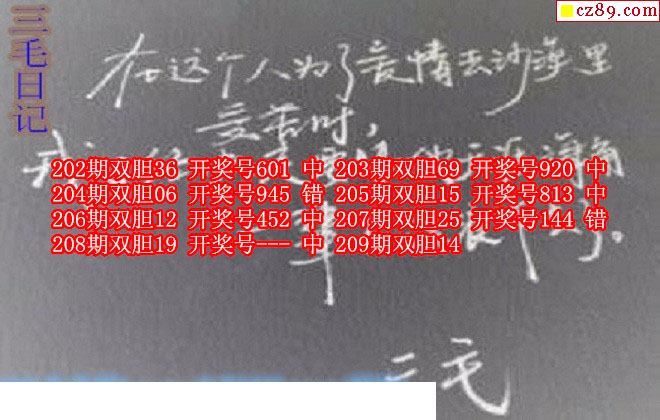 三毛日记
cz89.com
在这个人为了爱情去沙漠里
受苦时,
我
202期双胆36 开奖号601 中 203期双胆69 开奖号920 中
204期双胆06 开奖号945 错 205期双胆15 开奖号813 中
206期双胆12 开奖号452 中 207期双胆25 开奖号144 错
208期双胆19 开奖号--- 中 209期双胆14
三毛